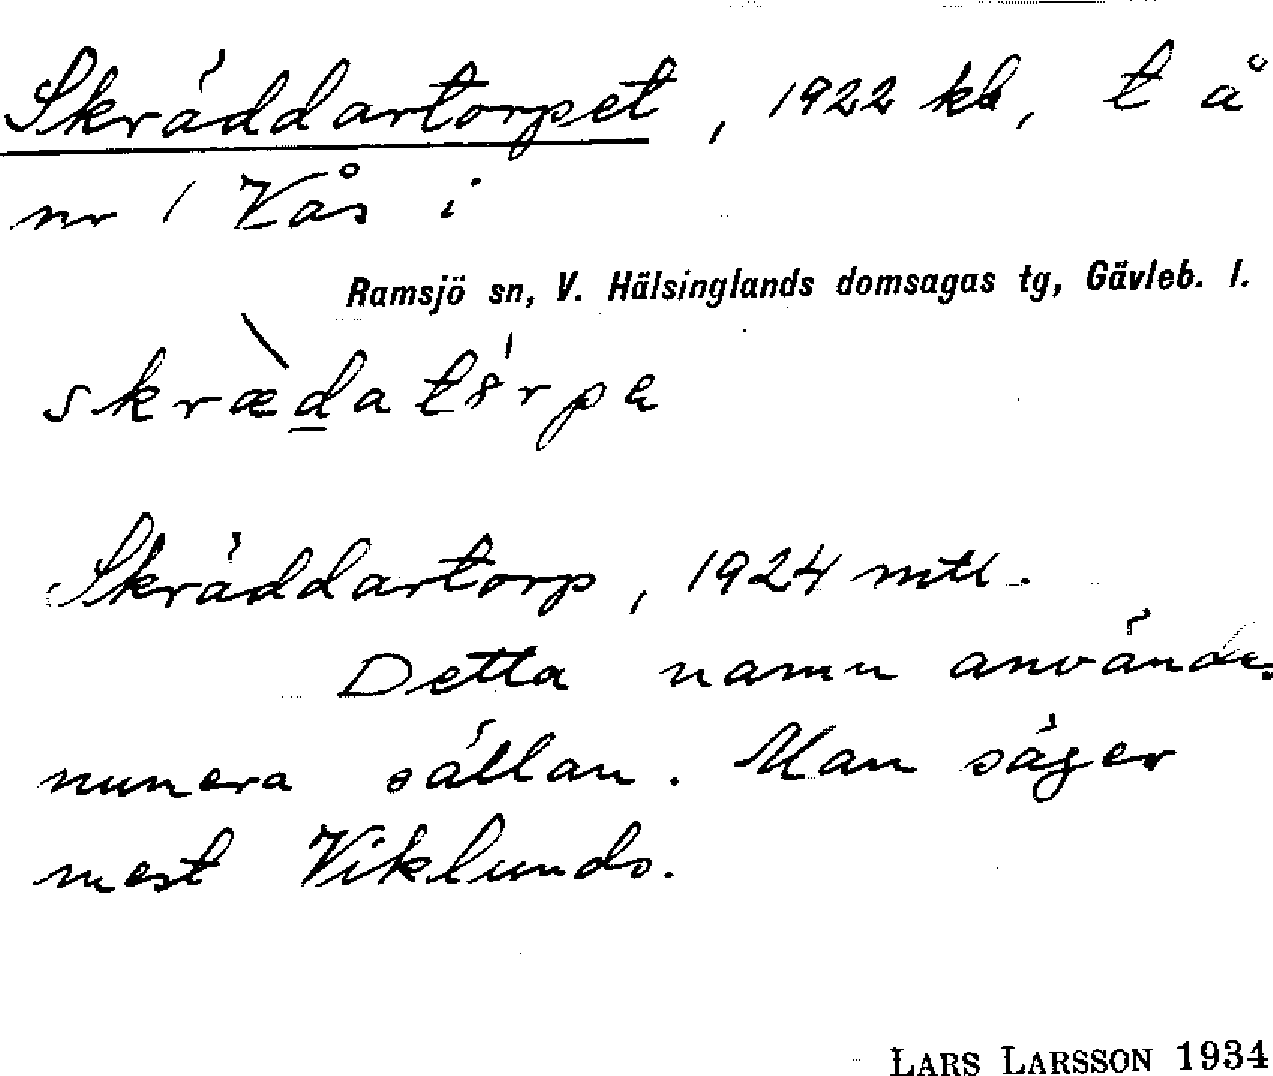 Skräddartorpet, 1922 kb, t å
nr 1 Vås i
Ramsjö sn, V. Hälsinglands domsagas tg, Gävleb. l.
Skräddartorp, 1924 mtl.
Detta namn användes
numera sällan. Man säger
mest Viklunds.
LARS LARSSON 1934